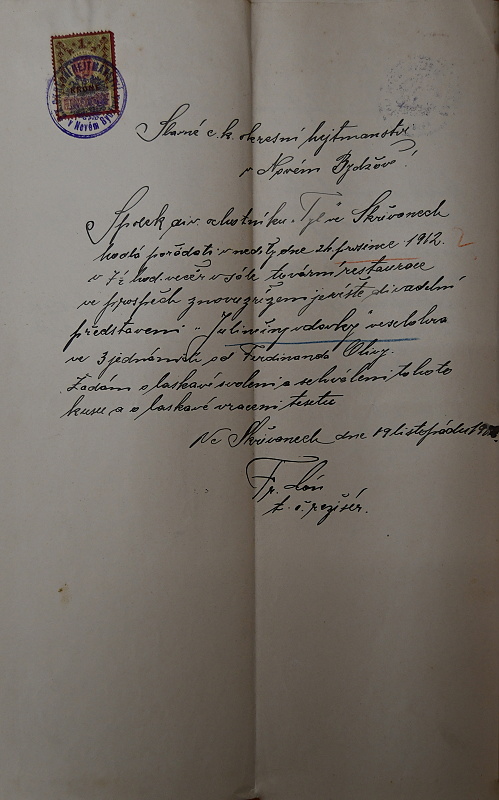 1
KRONE
HEJTMAN
v Novém Byd
Slavné c. k. okresní hejtmanství
v Novém Bydžově!
Spolek div. ochotníků „Tyl" ve Skřivanech
hodlá pořádati v neděli dne prosince 1912.
v 7½ hod. večer v sále tovární restaurace
ve prospěch znovuzřízení jeviště divadelní
představení „Julinčiny vdovky" veselohra
ve 3 jednáních od Ferdinanda Olivy.
Žádám o laskavé svolení a schválení tohoto
kusu a o laskavé vracení textu
Ve Skřivanech dne 19 listopadu
Fr.
t. č. režisér.